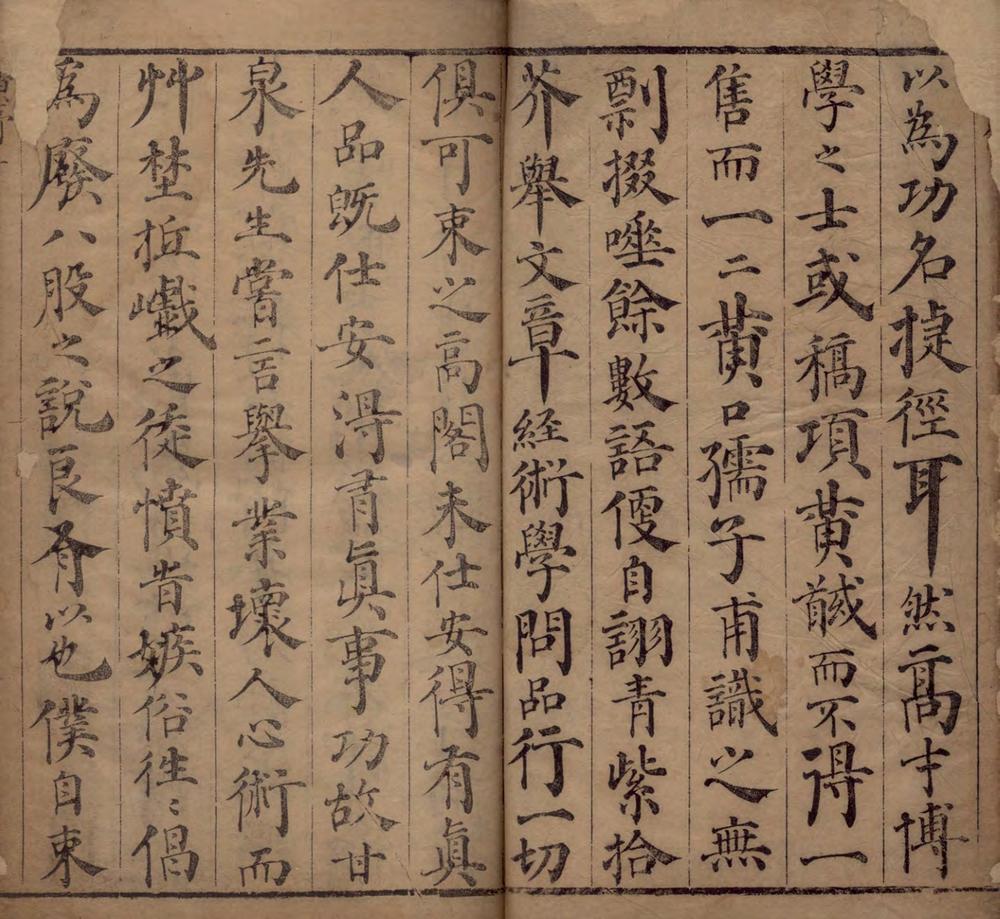 以為功名捷徑耳然高才博
學之士或稿項黄馘而不得一
售而一二黄口孺子甫識之無
剽掇唾餘數語便自詡青紫拾
芥舉文章経術學問品行一切
俱可束之高閣未仕安得有眞
人品既仕安淂有眞事功故甘
泉先生嘗言舉業壞人心術而
艸埜抵巇之徒憤昔嫉俗徃〻倡
為廢八股之說良有以也僕自束